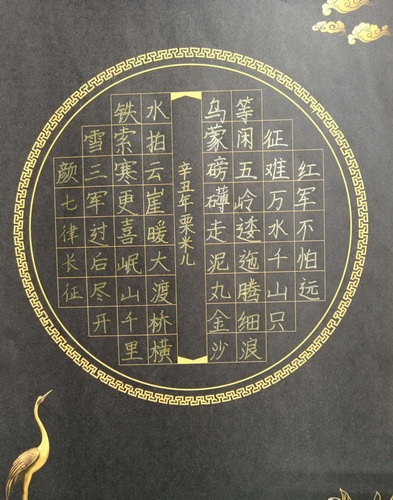 红军不怕远
征难万水千山只
等闲五岭逶迤腾细浪
乌蒙磅礴走泥丸金沙
辛丑年栗米儿
水拍云崖暖大渡桥横
铁索寒更喜岷山千里
雪三军过后尽开
颜七律长征